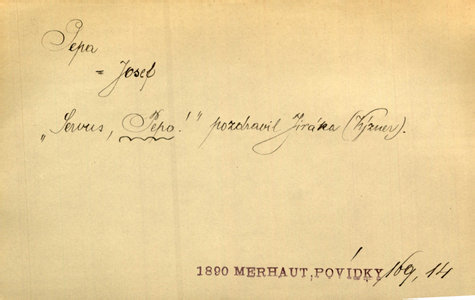 Pepa
= Josef
„Servus, Pepo!" pozdravil Jiráka (Kýzner).
1890 MERHAUT, POVÍDKY, 169, 14